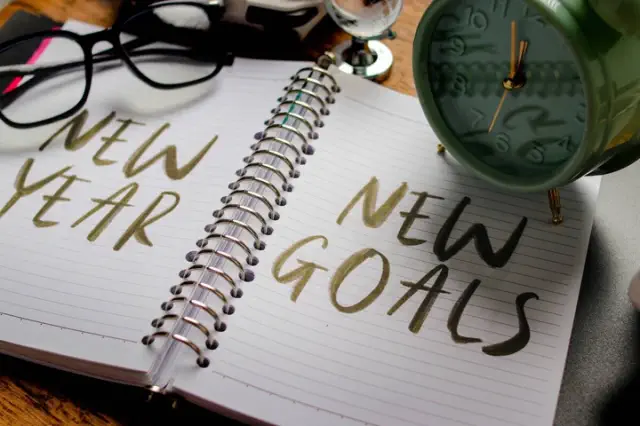 NEW
YEAR
NEW
GOALS